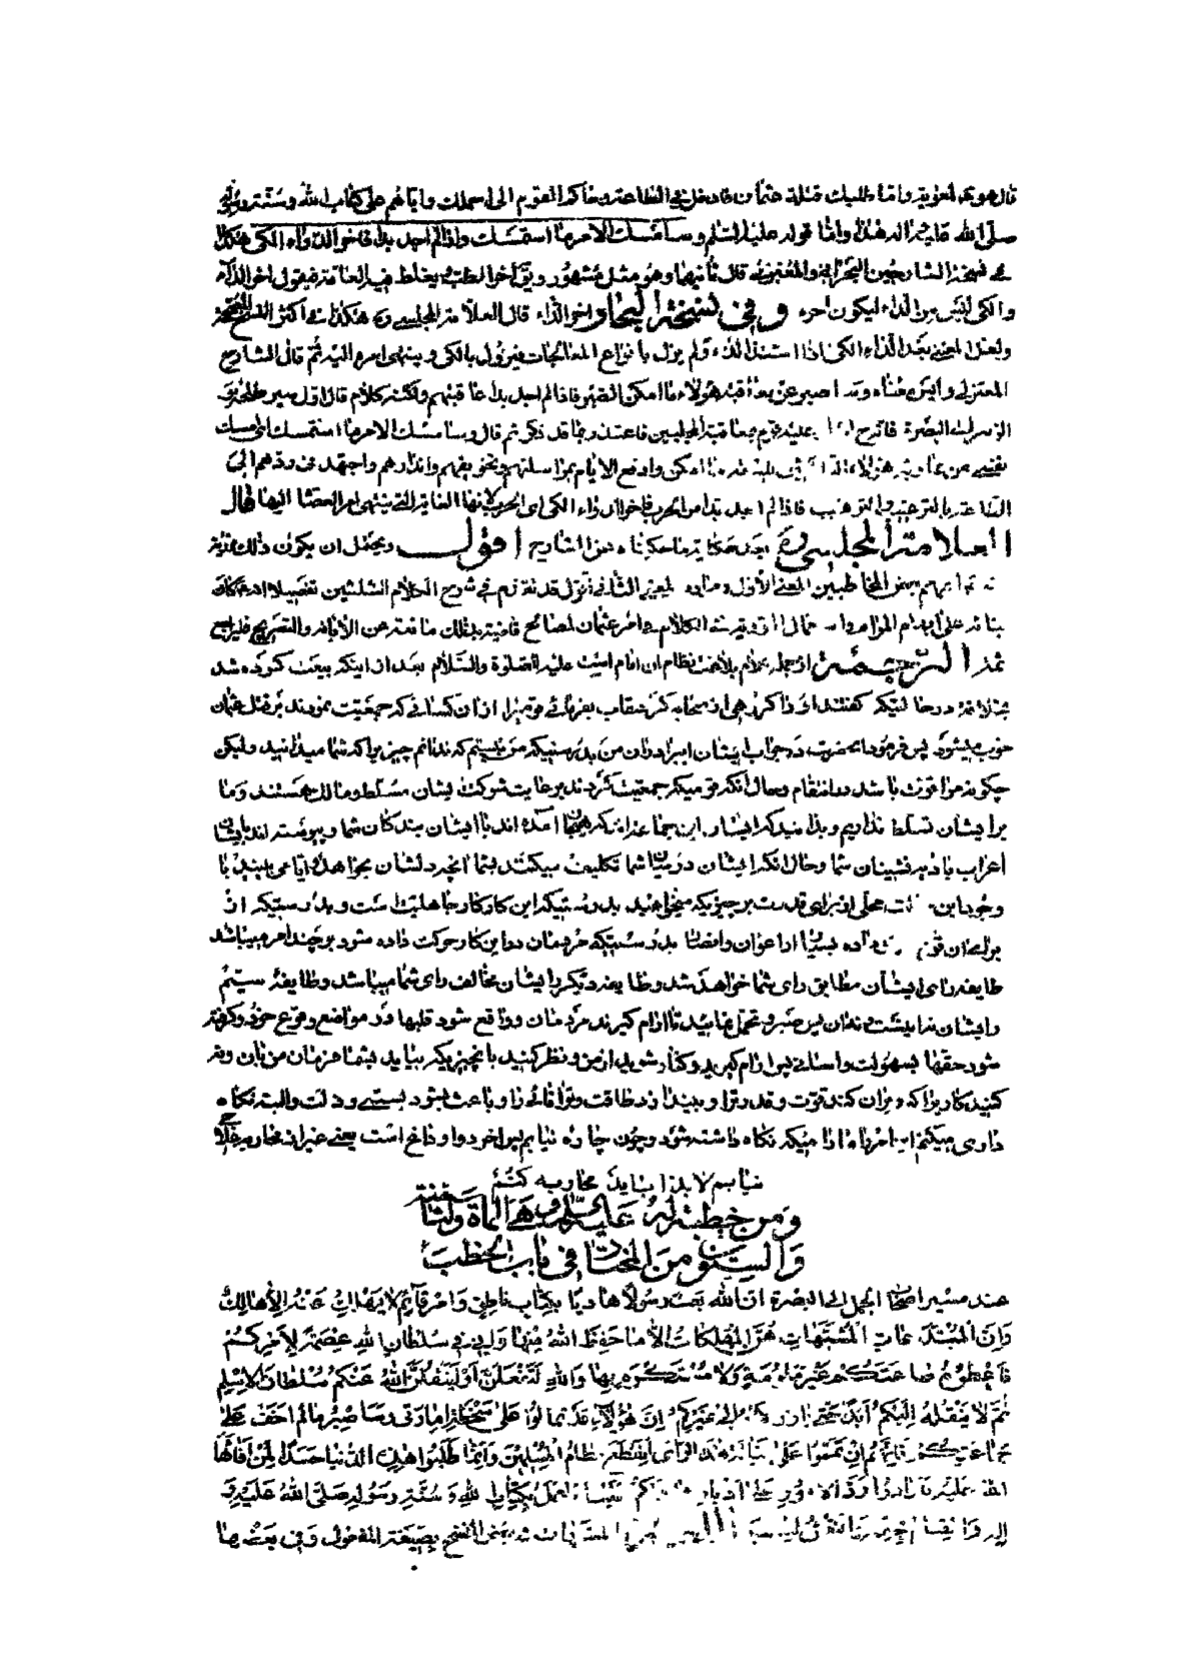 قال هو به لمعوية واما طلبك قتلة عثمان فادخل في الطاعة وحاكم القوم الى احملك واياهم على كتاب الله وسنة رسوله
صلى الله عليه واله هذا واما قوله عليه السلم وسامسك الامر ما استمسك واذا لم اجد بدا فاخر الدواء الكى هكذا
في نسخة الشارحين البحراني والمعتزلي قال ثانيهما وهو مثل مشهور ويق اخر الطب ويغلط فيه العامة فيقول اخر الداء
والكى ليس من الداء ليكون اخره وفي نسخة البحار اخر الداء قال العلامة المجلسي ره هكذا في اكثر النسخ
ولعل المعنى بعد الداء الكى اذا اشتد الداء ولم يزل بانواع المعالجات فيزول بالكى وينتهى امره اليه ثم قال الشارح
المعتزلي وليس معناه وساصبر عن معاقبة هؤلاء ما امكن الصبر فاذا لم اجد بدا عاقبتهم ولكنه كلام قاله اول مسير طلحة
الى البصرة فانه ح اشار عليه قوم بمعاقبة المجلبين فاعتذر بما قد ذكر ثم قال وسامسك الامر ما استمسك اى امسك
نفسي عن محاربة هؤلاء ما امكن وادفع الايام بمراسلتهم وتخويفهم وانذارهم واجتهد في ردهم الى
الطاعة بالترغيب والترهيب فاذا لم اجد بدا من الحرب فاخر الدواء الكى اى الحرب لانها الغاية التي ينتهى امر العصاة اليها قال
العلامة المجلسي ره بعد حكاية ما حكيناه عن الشارح اقول ويحتمل ان يكون ذلك تورية
بعض المخاطبين المعنى الاول ومراده المعنى الثاني اقول قد تقدم في شرح الكلام الثلثين تفصيلا
على الكلام في امر عثمان لمصالح قاضية بذلك مانعة عن الابانة والتصريح فليراجع
ثمة الترجمة از جمله كلام بلاغت نظام ان امام است عليه الصلوة والسلام بعد از اينكه بيعت كرده شد
بخلافة در حالتيكه گفتند او را گروهى از صحابه كه عقاب بفرمائى از ان كسانى كه جمعيت نمودند بر قتل عثمان
خوب ميشود پس فرمود انحضرت در جواب ايشان اى برادران من بدرستيكه من نيستم كه ندانم چيزيرا كه شما ميدانيد وليكن
چگونه مرا قوت باشد در انتقام وحال انكه قوميكه جمعيت كردند بر غايت شوكت ايشان مسلط ومالك هستند وما
بر ايشان تسلط نداريم وبدانيد كه ايشان اين جماعتند كه بهيجان آمده اند با ايشان بندگان شما وپيوسته اند بايشان
اعراب باديه نشينان شما وحال انكه ايشان در ميان شما تكليف ميكنند بشما انچه دلشان بخواهد ايا مى بينيد با
وجود اين محلى از براى قدرت بر چيزيكه ميخواهيد بدرستيكه اين كار كار جاهليت است وبدرستيكه از
براى ان قوم ماده بسيار از اعوان وانصار بدرستيكه مردمان در اين كار حركت داده شود بر چند امر ميباشند
طايفه راى ايشان مطابق راى شما خواهد شد وطايفه ديگر راى ايشان مخالف راى شما ميباشد وطايفه سيم
راى ايشان نه اينست نه ان پس صبر وتحمل نمائيد تا ارام گيرند مردمان وواقع شود قلبها در مواضع وقوع خود وگرفته
شود حقها بسهولت واسانى پس ارام گيريد وكنار شويد از من ونظر كنيد بانچيزيكه بيايد بشما فرمان من بان ونه
كنيد كاريرا كه ويران كند قوت وقدرت را وبيندازد طاقت وتوانائى را وباعث شود بسستى وذلت والبته نگاه
دارى ميكنم اين امر را ماداميكه نگاه داشته شود وچون چاره نيابم پس اخر دوا داغ است يعنى غير از محاربه علاج
نيابم لابد ابا يد محاربه كنم
ومن خطبة له عليه السلم وهي المأة والثامنة
والستون من المختار في باب الخطب
عند مسير اصحاب الجمل الى البصرة ان الله بعث رسولا هاديا بكتاب ناطق وامر قآئم لا يهلك عنه الا هالك
وان المبتدعات المشبهات هن المهلكات الا ما حفظ الله منها وان في سلطان الله عصمة لامركم
فاعطوه طاعتكم غير ملومة ولا مستكره بها والله لتفعلن او لينقلن الله عنكم سلطان الاسلم
ثم لا ينقله اليكم ابدا حتى يارز الامر الى غيركم ان هؤلاء قد تمالؤا على سخطة امارتى وساصبر ما لم اخف على
جماعتكم فانهم ان تمموا على فيالة هذا الراى انقطع نظام المسلمين وانما طلبوا هذه الدنيا حسدا لمن افآئها
الله عليه فارادوا رد الامور على ادبارها ولكم علينا العمل بكتاب الله وسنة رسوله صلى الله عليه و
اله والقيام بحقه بفتح بصيغة المفعول وفي بعضها